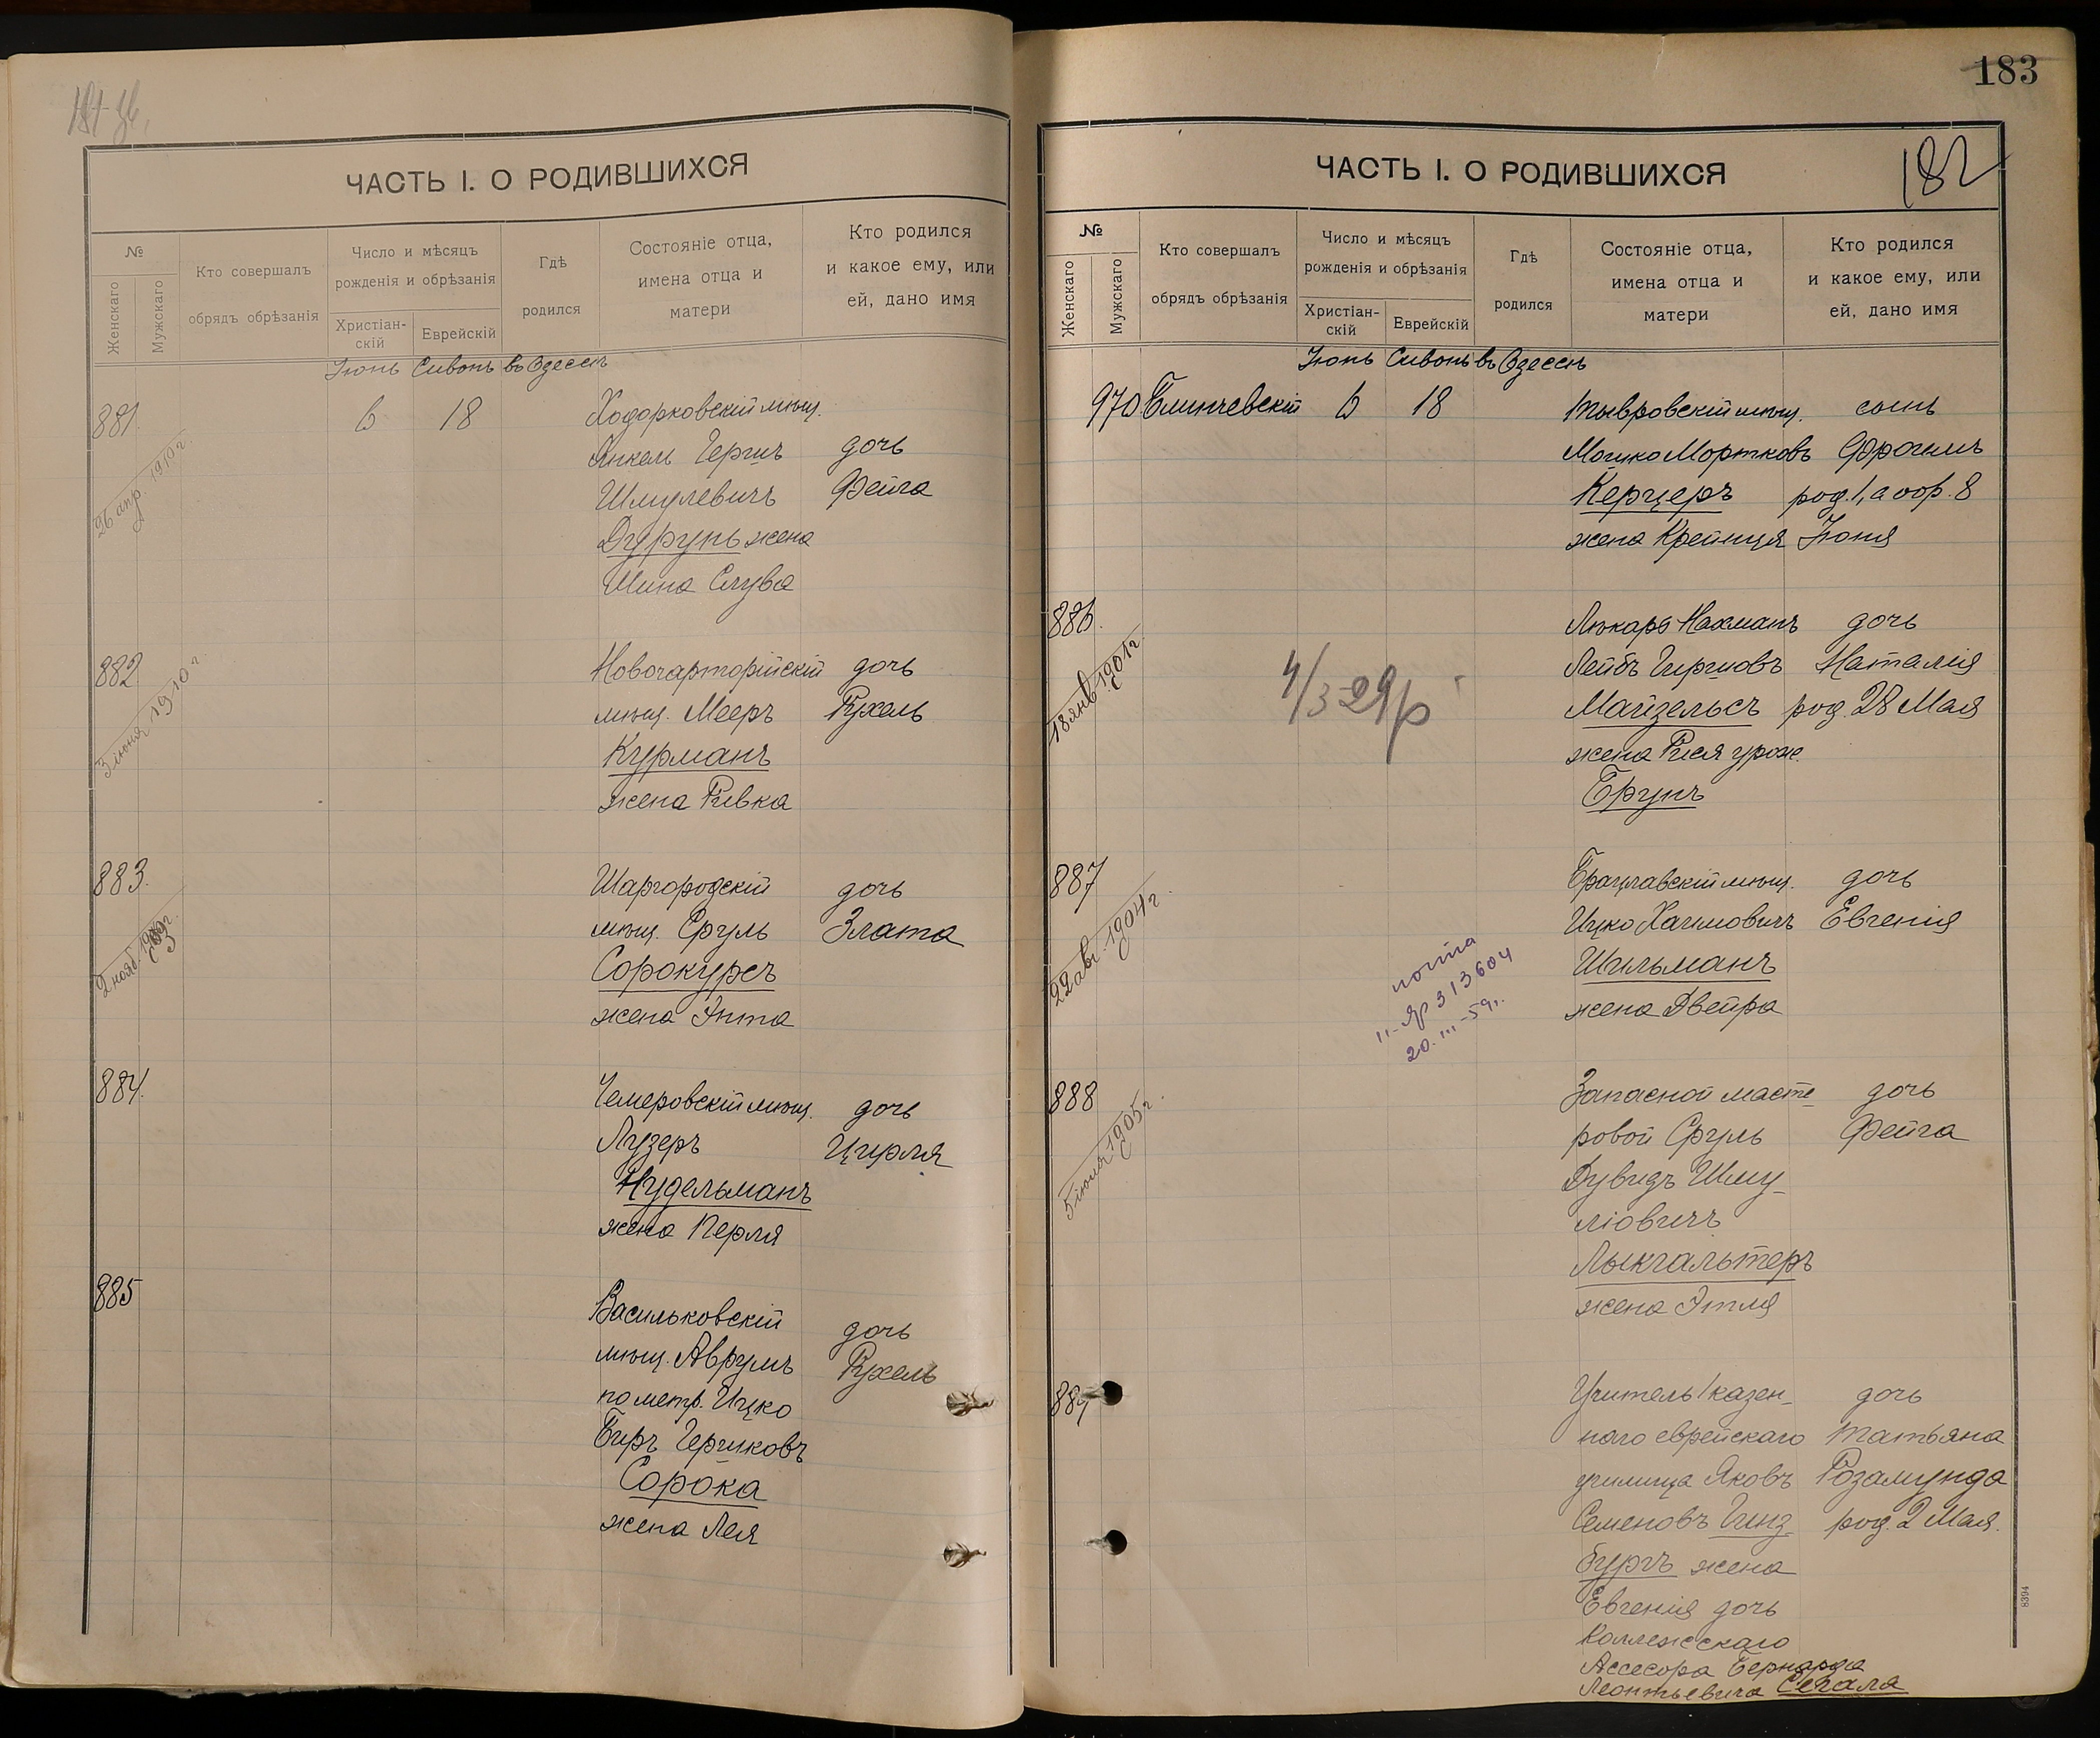 ЧАСТЬ I. О РОДИВШИХСЯ
№
Женскаго
Мужскаго
Кто совершалъ
обрядъ обрѣзанія
Число и мѣсяцъ
рожденія и обрѣзанія
Христіан-
скій
Еврейскій
Гдѣ
родился
Состояніе отца,
имена отца и
матери
Кто родился
и какое ему, или
ей, дано имя
Іюнь Сивонъ въ Одессѣ
881. 6 18 Ходорковскій мѣщ.
Янкель Гершъ дочь
Шмулевичъ Фейга
Дурунъ жена
Шина Слува
26 апр. 1910 г.
882 Новочарторійскій дочь
мѣщ. Мееръ Рухель
Курманъ
жена Ривка
3 іюня 1910 г.
883. Шаргородскій дочь
мѣщ. Сруль Злата
Сорокурсъ
жена Энта
2 нояб.
884. Чемеровскій мѣщ. дочь
Лузеръ Цирля
Нудельманъ
жена Перля
885 Васильковскій дочь
мѣщ. Аврумъ Рухель
по метр. Ицко
Биръ Гершковъ
Сорока
жена Лея
183
182
ЧАСТЬ I. О РОДИВШИХСЯ
№
Женскаго
Мужскаго
Кто совершалъ
обрядъ обрѣзанія
Число и мѣсяцъ
рожденія и обрѣзанія
Христіан-
скій
Еврейскій
Гдѣ
родился
Состояніе отца,
имена отца и
матери
Кто родился
и какое ему, или
ей, дано имя
Іюнь Сивонъ въ Одессѣ
970 Блинчевскій 6 18 Тывровскій мѣщ. сынъ
Мошко Мортковъ Фроимъ
Керцеръ род. 1, а обр. 8
жена Крейнця Іюня
886. Лѣкарь Нахманъ дочь
Лейбъ Гиршовъ Наталія
Майзельсъ род. 28 Мая
жена Рися урож.
Брунъ
18 янв 1901 г.
887 Брацлавскій мѣщ. дочь
Ицко Хаимовичъ Евгенія
Шильманъ
жена Двейра
22 авг. 1904 г.
почта
II-Яр 313604
20.III-59г.
888 Запасной масте- дочь
ровой Сруль Фейга
Дувидъ Шму-
ліовичъ
Лыкгальтеръ
жена Этля
5 іюля 1905 г.
889 Учитель казен- дочь
наго еврейскаго Татьяна
училища Яковъ Розамунда
Семеновъ Гинз- род. 2 Мая.
бургъ жена
Евгенія дочь
Коллежскаго
Ассесора Бернарда
Леонтьевича Сегала
8394